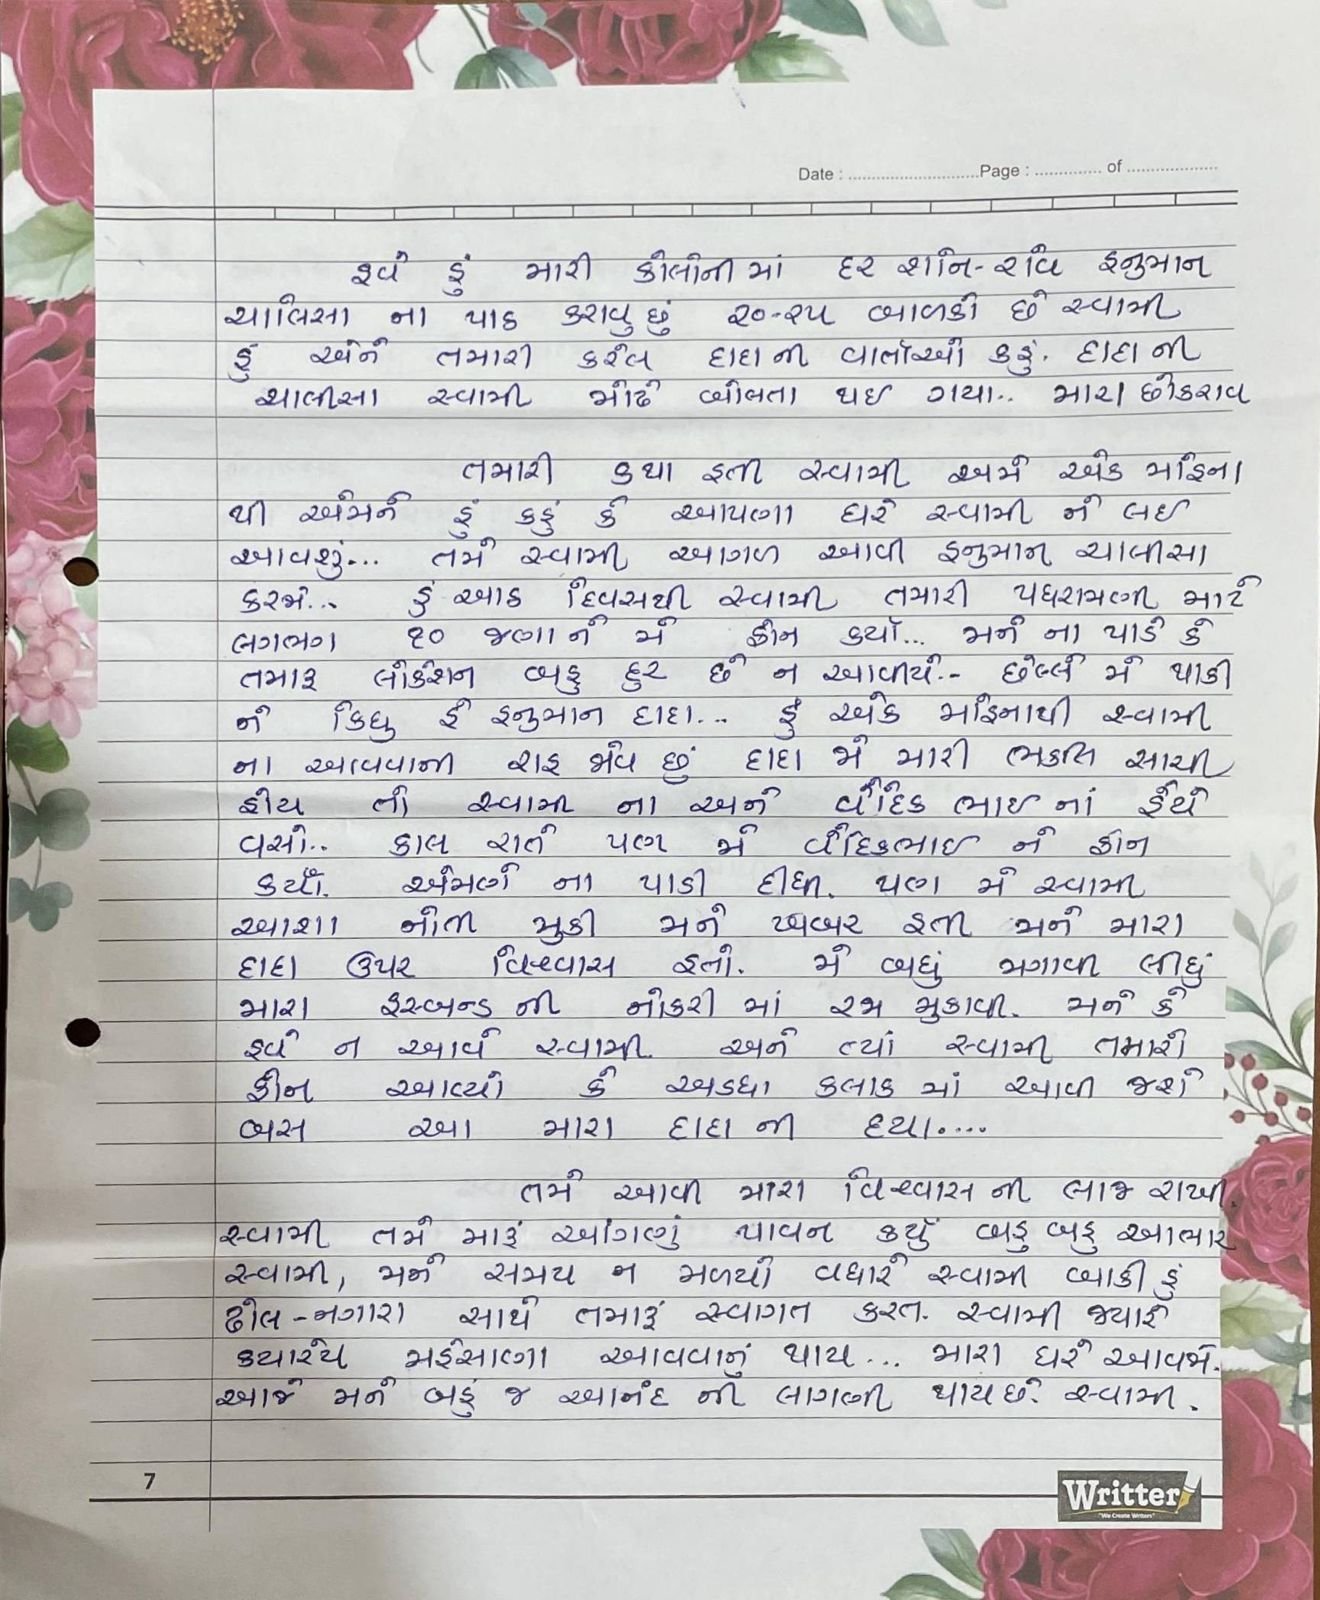 Date : ............................Page : .............. of ...................
હવે હું મારી કોલોની માં દર શનિ-રવિ હનુમાન
ચાલિસા ના પાઠ કરાવુ છું ૨૦-૨૫ બાળકો છે સ્વામી
હું એને તમારી કરેલ દાદા ની વાર્તાઓ કહું. દાદા ની
ચાલીસા સ્વામી મોઢે બોલતા થઇ ગયા.. મારા છોકરાવ
તમારી કથા હતી સ્વામી અમે એક મહિના
થી એમને હું કહું કે આપણા ઘરે સ્વામી ને લઇ
આવશું... તમે સ્વામી આગળ આવી હનુમાન ચાલીસા
કરજો... હું આઠ દિવસથી સ્વામી તમારી પધરામણી માટે
લગભગ ૧૦ જણા ને મે ફોન કર્યો... મને ના પાડે કે
તમારૂ લોકેશન બહુ દુર છે ન આવીયે.- છેલ્લે મે થાકી
ને કિધુ હે હનુમાન દાદા... હું એક મહિનાથી સ્વામી
ના આવવાની રાહ જોવ છું દાદા જો મારી ભકતિ સાચી
હોય તો સ્વામી ના અને વૈદિક ભાઇ નાં હૈયે
વસો.. કાલ રાતે પણ મે વૈદિકભાઇ ને ફોન
કર્યો. એમણે ના પાડી દીધી. પણ મે સ્વામી
આશા નોતી મુકી મને ખબર હતી મને મારા
દાદા ઉપર વિશ્વાસ હતો. મે બધું મગાવી લીધું
મારા હસ્બન્ડ ની નોકરી માં રજા મુકાવી. મને કે
હવે ન આવે સ્વામી. અને ત્યાં સ્વામી તમારો
ફોન આવ્યો કે અડધા કલાક માં આવી જશે
બસ આ મારા દાદા ની દયા....
તમે આવી મારા વિશ્વાસ ની લાજ રાખી.
સ્વામી તમે મારૂં આંગણું પાવન કર્યું બહુ બહુ આભાર
સ્વામી, મને સમય ન મળ્યો વધારે સ્વામી બાકી હું
ઢોલ-નગારા સાથે તમારૂં સ્વાગત કરત. સ્વામી જ્યારે
ક્યારેય મહેસાણા આવવાનું થાય... મારા ઘરે આવજો.
આજે મને બહું જ આનંદ ની લાગણી થાય છે. સ્વામી.
7
Writter
"We Create Writers"